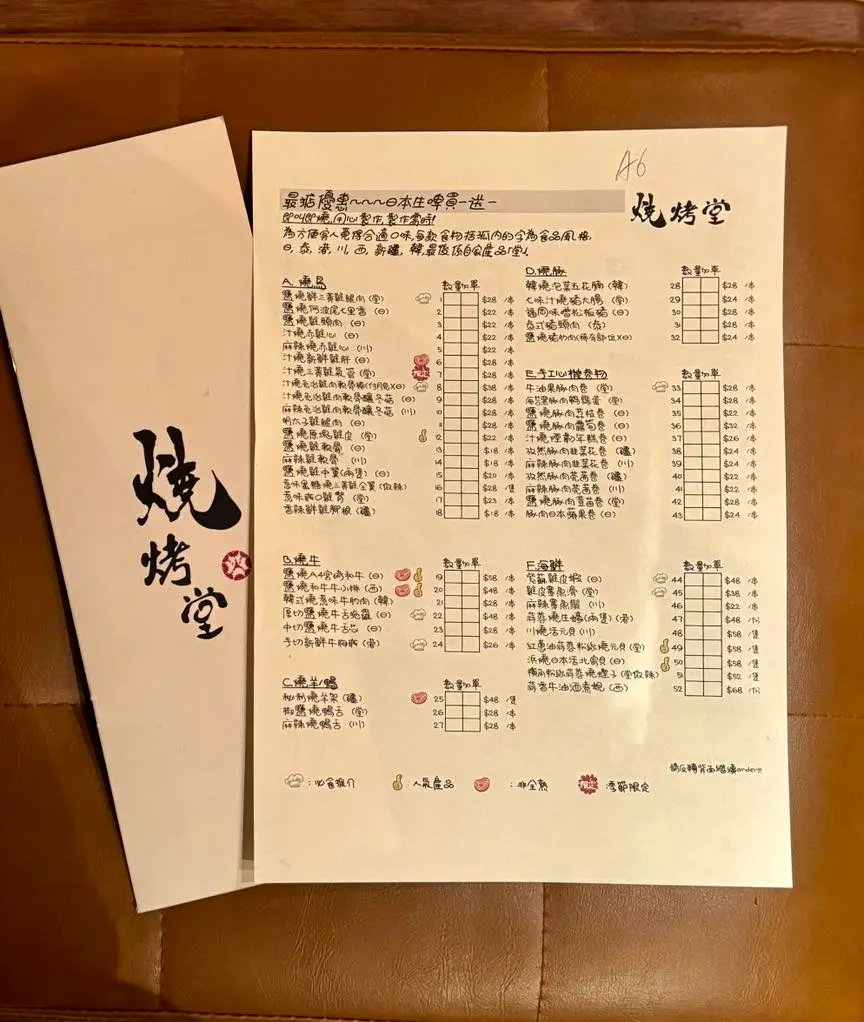 燒烤堂
A6
最癲優惠~~~日本生啤買一送一
燒烤堂
即叫即燒,用心製作,製作需時!
為方便客人覓得合適口味,每款食物括弧內的字為食品風格,
日, 泰, 港, 川, 西, 新疆, 韓,最後係自家產品「堂」
A. 燒鳥 數量 切 單
鹽燒鮮三黃雞腿肉 (堂) 1 $28 /串
鹽燒阿波尾七里香 (日) 2 $22 /串
鹽燒雞頸肉 (日) 3 $22 /串
汁燒赤雞心 (日) 4 $22 /串
麻辣燒赤雞心 (川) 5 $22 /串
汁燒新鮮雞肝 (日) 6 $28 /串
汁燒三黃雞 (堂) 7 $28 /串
汁燒免治雞肉軟骨棒(付月見)(日) 8 $38 /串
汁燒免治雞肉軟骨釀冬菇 (日) 9 $28 /串
麻辣免治雞肉軟骨釀冬菇 (川) 10 $28 /串
明太子雞腿肉 (日) 11 $28 /串
鹽燒原塊雞皮 (堂) 12 $22 /串
鹽燒雞軟骨 (日) 13 $18 /串
麻辣雞軟骨 (川) 14 $18 /串
鹽燒雞中翼(兩隻) (日) 15 $20 /串
惹味蜜糖燒三黃雞全翼 (微辣) 16 $28 /隻
惹味雞腎 (堂) 17 $23 /串
香辣鮮雞腳根 (疆) 18 $18 /串
B.燒牛 數量 切 單
鹽燒A4宮崎和牛 (日) 19 $58 /串
鹽燒和牛牛小排 (西) 20 $48 /串
韓式燒惹味牛肋肉 (韓) 21 $28 /串
厚切鹽燒牛舌 (日) 22 $48 /串
中切鹽燒牛舌芯 (日) 23 $28 /串
手切新鮮牛 (港) 24 $26 /串
C.燒羊/鴨 數量 切 單
秘制燒羊架 (疆) 25 $48 /隻
椒鹽燒鴨舌 (堂) 26 $28 /串
麻辣燒鴨舌 (川) 27 $28 /串
D.燒豚 數量 切 單
韓燒泡菜五花腩 (韓) 28 $28 /串
七味汁燒豬大腸 (堂) 29 $24 /串
福岡味噌松板豬 (日) 30 $28 /串
泰式豬頸肉 (泰) 31 $28 /串
鹽燒豬肋肉(稀有部位)(日) 32 $24 /串
E.手工心機卷物 數量 切 單
牛油果豚肉卷 (堂) 33 $28 /串
海苔豚肉鵪鶉蛋 (堂) 34 $28 /串
鹽燒豚肉荔枝卷 (日) 35 $22 /串
鹽燒豚肉露筍卷 (日) 36 $32 /串
汁燒煙韌年糕卷 (日) 37 $26 /串
孜然豚肉韮菜花卷 (疆) 38 $24 /串
麻辣豚肉韮菜花卷 (川) 39 $24 /串
孜然豚肉茼蒿卷 (疆) 40 $22 /串
麻辣豚肉茼蒿卷 (川) 41 $22 /串
鹽燒豚肉荳苗卷 (堂) 42 $28 /串
豚肉日本蘋果卷 (日) 43 $24 /串
F.海鮮 數量 切 單
紫蘇雞皮蝦 (日) 44 $48 /串
雞皮墨魚滑 (堂) 45 $38 /串
麻辣墨魚鬚 (川) 46 $22 /串
蒜蓉燒生蠔(兩隻) (港) 47 $48 /份
川燒活元貝 (川) 48 $58 /隻
紅蔥油蒜蓉粉絲燒元貝 (堂) 49 $58 /隻
浜燒日本活北寄貝 (日) 50 $58 /隻
獨角粉絲蒜蓉燒蟶子 (堂微辣) 51 $52 /隻
蒜香牛油酒煮蜆 (西) 52 $68 /份
請反轉背面繼續order!!
: 必食推介 : 人氣產品 : 非全熟 : 季節限定